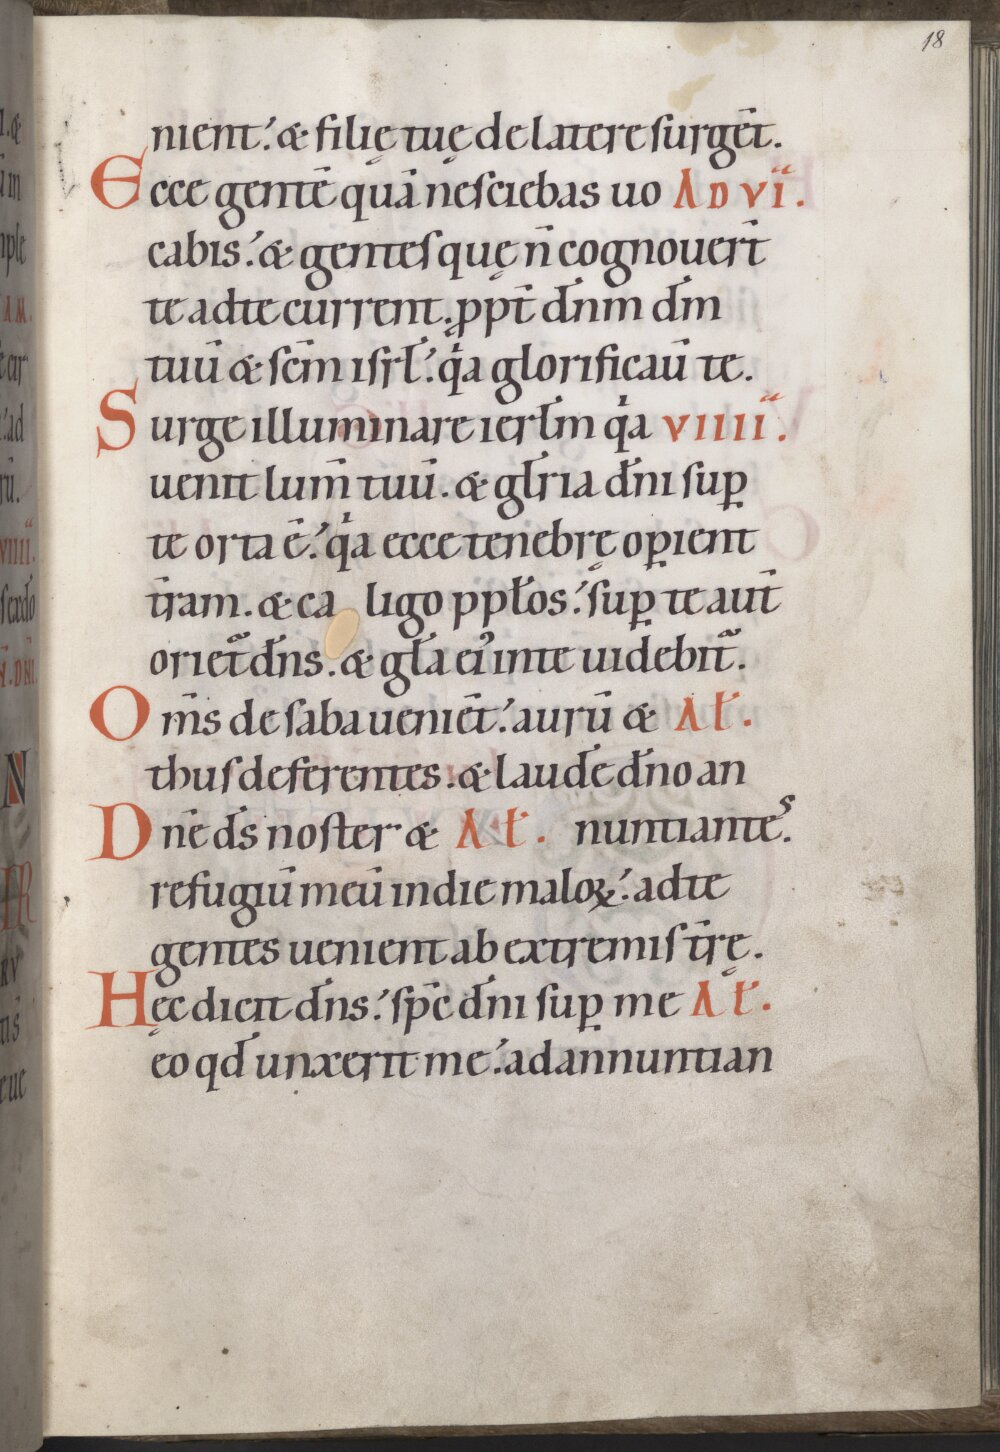 18
nient.' & filię tuę de latere surgēt.
Ecce gentē quā nesciebas uo AD VI.
cabis.' & gentes quę n̄ cognouer̄t
te ad te current. ꝓpt̄ dn̄m dm̄
tuū & scm̄ isrł.' qⁱa glorificaū te.
Surge illuminare ierłm qⁱa VIIII.
uenit lum̄ tuū. & gl̄ria dn̄i suꝑ
te orta ē.' qⁱa ecce tenebrę oꝑient
tr̄am. & caligo ppłos.' suꝑ te aut̄
oriet᷑ dn̄s. & gła ei᾽ in te uidebit᷑.
Om̄s de saba ueniēt.' aurū & Ał.
thus deferentes. & laudē dn̄o an
Dn̄e ds̄ noster & Ał. nuntiantes.
refugiū meū in die maloꝝ.' ad te
gentes uenient ab extremis tr̄ę.
Hęc dicit dn̄s.' spc̄ dn̄i suꝑ me Ał.
eo qđ unxerit me.' ad annuntian